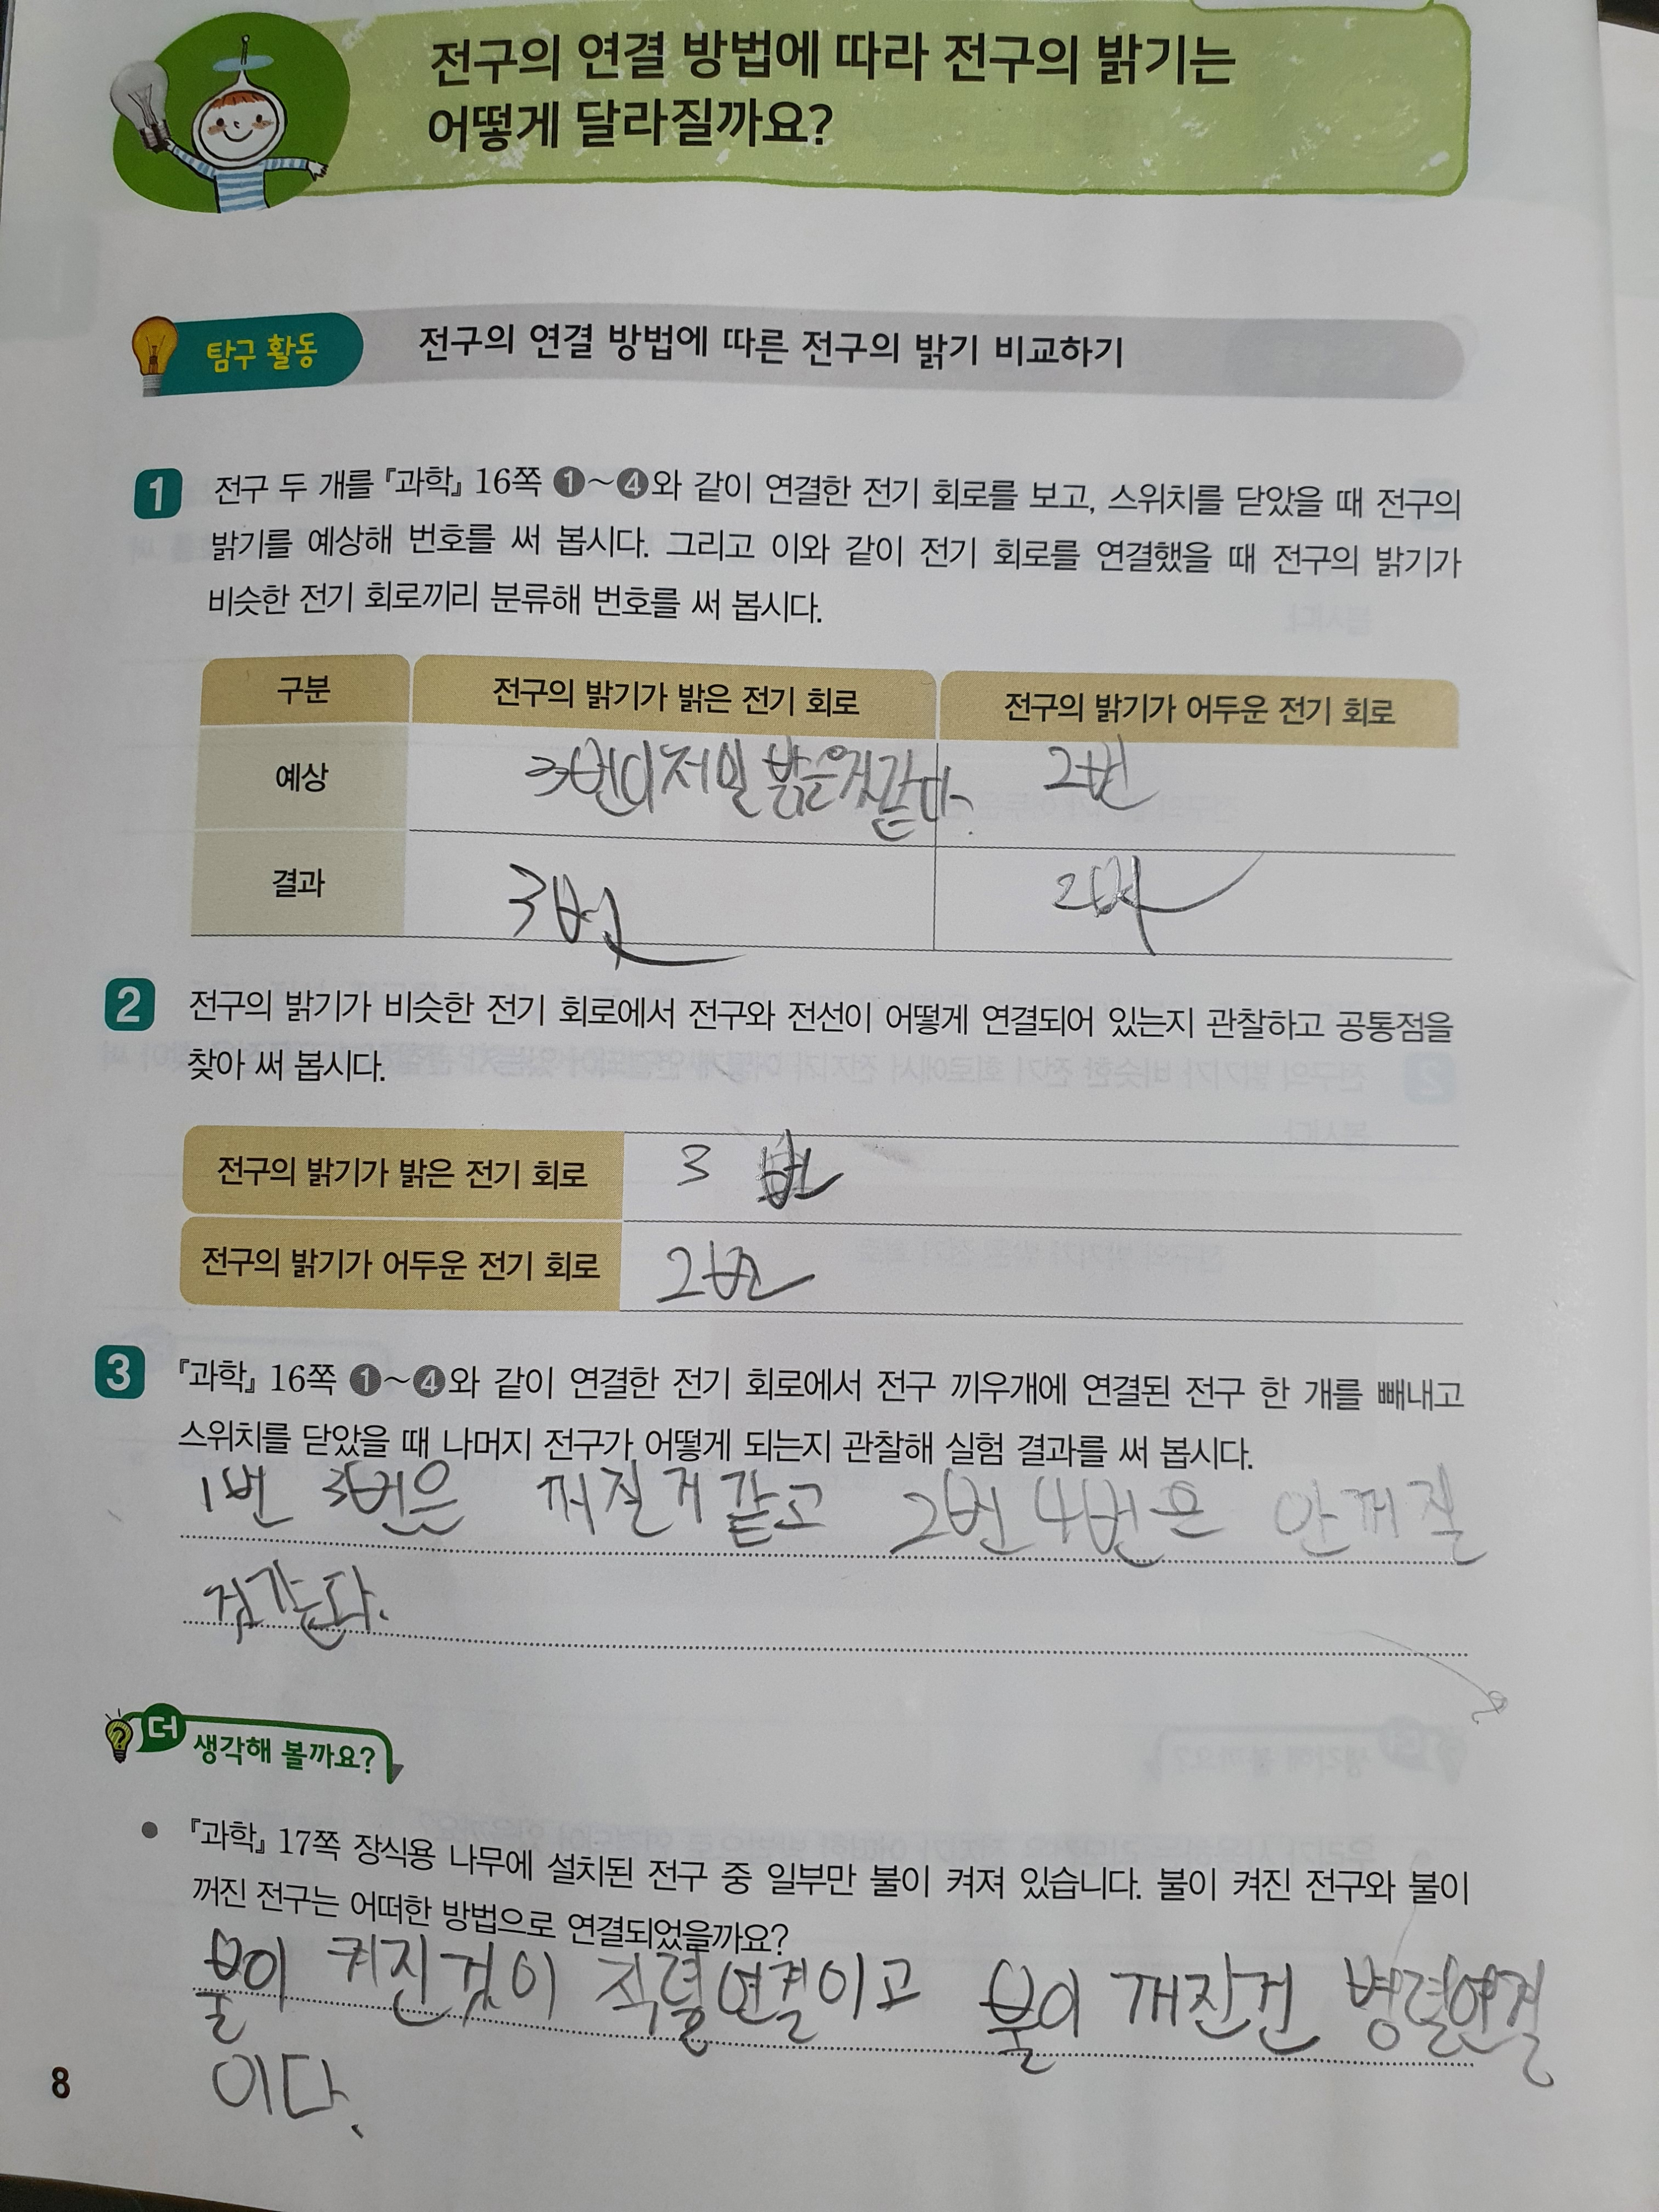 전구의 연결 방법에 따라 전구의 밝기는
어떻게 달라질까요?
탐구 활동
전구의 연결 방법에 따른 전구의 밝기 비교하기
1 전구 두 개를 『과학』 16쪽 ❶～❹와 같이 연결한 전기 회로를 보고, 스위치를 닫았을 때 전구의
밝기를 예상해 번호를 써 봅시다. 그리고 이와 같이 전기 회로를 연결했을 때 전구의 밝기가
비슷한 전기 회로끼리 분류해 번호를 써 봅시다.
구분 전구의 밝기가 밝은 전기 회로 전구의 밝기가 어두운 전기 회로
예상 3번이 저일 밝은것같다. 2번
결과 3번 2번
2 전구의 밝기가 비슷한 전기 회로에서 전구와 전선이 어떻게 연결되어 있는지 관찰하고 공통점을
찾아 써 봅시다.
전구의 밝기가 밝은 전기 회로 3 번
전구의 밝기가 어두운 전기 회로 2번
3 『과학』 16쪽 ❶～❹와 같이 연결한 전기 회로에서 전구 끼우개에 연결된 전구 한 개를 빼내고
스위치를 닫았을 때 나머지 전구가 어떻게 되는지 관찰해 실험 결과를 써 봅시다.
1번 3번은 꺼질거 같고 2번 4번은 안꺼질
것같다.
더 생각해 볼까요?
● 『과학』 17쪽 장식용 나무에 설치된 전구 중 일부만 불이 켜져 있습니다. 불이 켜진 전구와 불이
꺼진 전구는 어떠한 방법으로 연결되었을까요?
불이 켜진것이 직렬연결이고 불이 깨진건 병렬연결
이다.
8